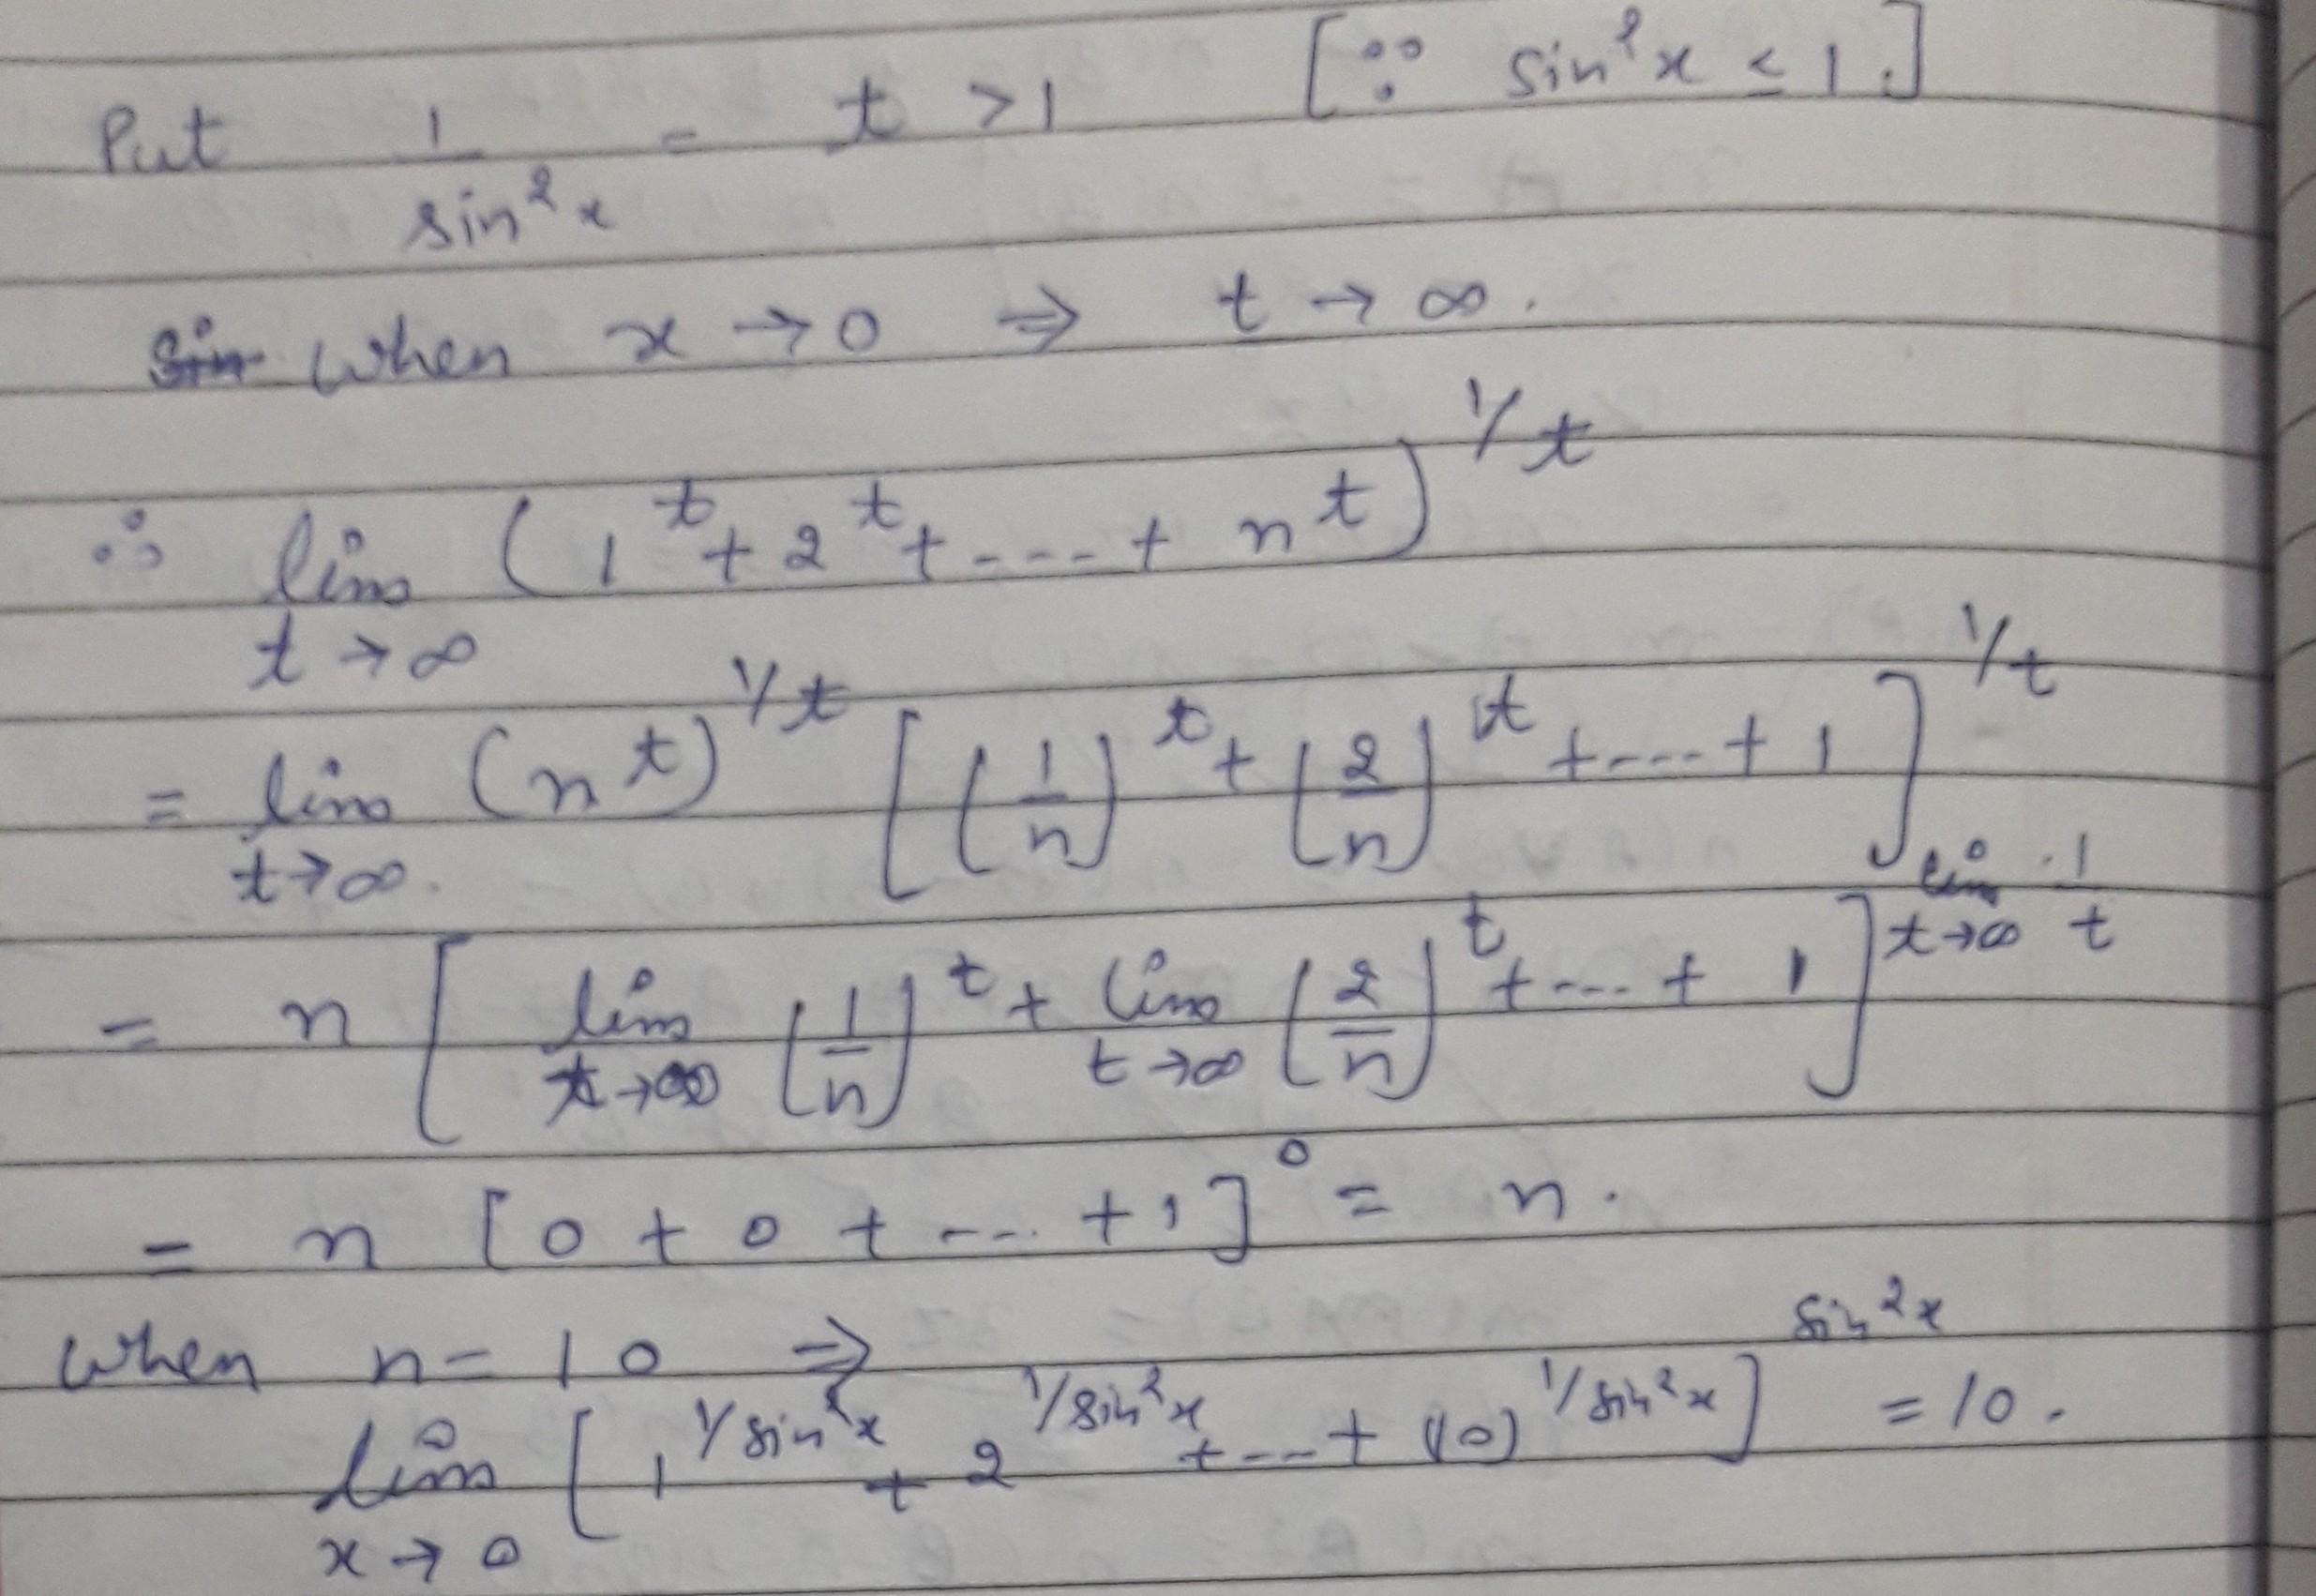 Put 1/sin²x = t > 1 [∵ sin²x ≤ 1.]
Sin When x → 0 ⇒ t → ∞.
∴ lim t→∞ (1^t + 2^t + ---- + n^t)^1/t
= lim t→∞. (n^t)^1/t [(1/n)^t + (2/n)^t + ---- + 1]^1/t
= n [lim t→∞ (1/n)^t + lim t→∞ (2/n)^t + ---- + 1]^lim t→∞ 1/t
= n [0 + 0 + ---- + 1]^0 = n.
When n = 10 ⇒
lim x→0 [1^1/sin²x + 2^1/sin²x + ---- + (10)^1/sin²x]^sin²x = 10.